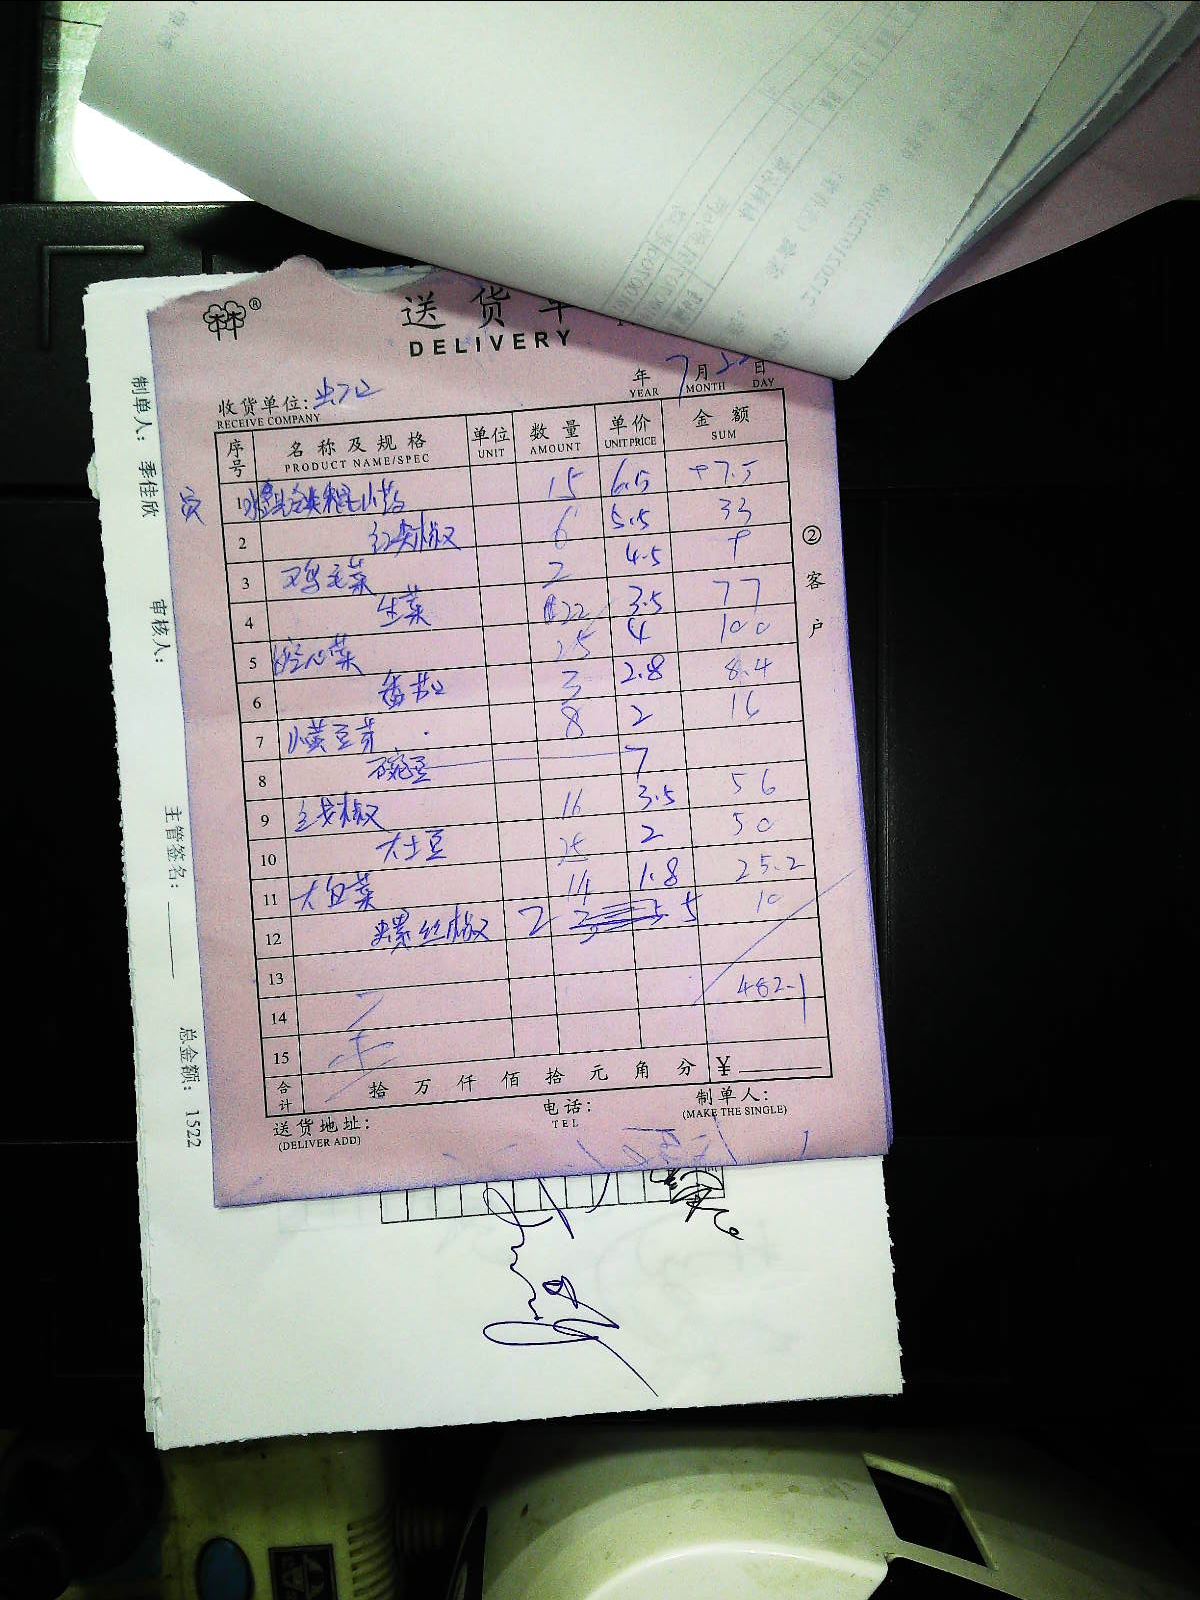 送货单
DELIVERY
年 7月22日
YEAR MONTH DAY
收货单位:
RECEIVE COMPANY
序号 名称及规格 单位 数量 单价 金额
PRODUCT NAME/SPEC UNIT AMOUNT UNIT PRICE SUM
1 15 6.5 97.5
2 红尖椒 6 5.5 33
3 鸡毛菜 2 4.5 9
4 生菜 22 3.5 77
5 空心菜 25 4 100
6 番茄 3 2.8 8.4
7 小黄豆芽 8 2 16
8 豌豆 7
9 线椒 16 3.5 56
10 大土豆 25 2 50
11 大白菜 14 1.8 25.2
12 螺丝椒 2 5 10
13
482.1
14
15
合计 拾 万 仟 佰 拾 元 角 分 ¥
送货地址: 电话: 制单人:
(DELIVER ADD) TEL (MAKE THE SINGLE)
②客户
制单人: 季佳欣 审核人: 主管签名: 总金额: 1522